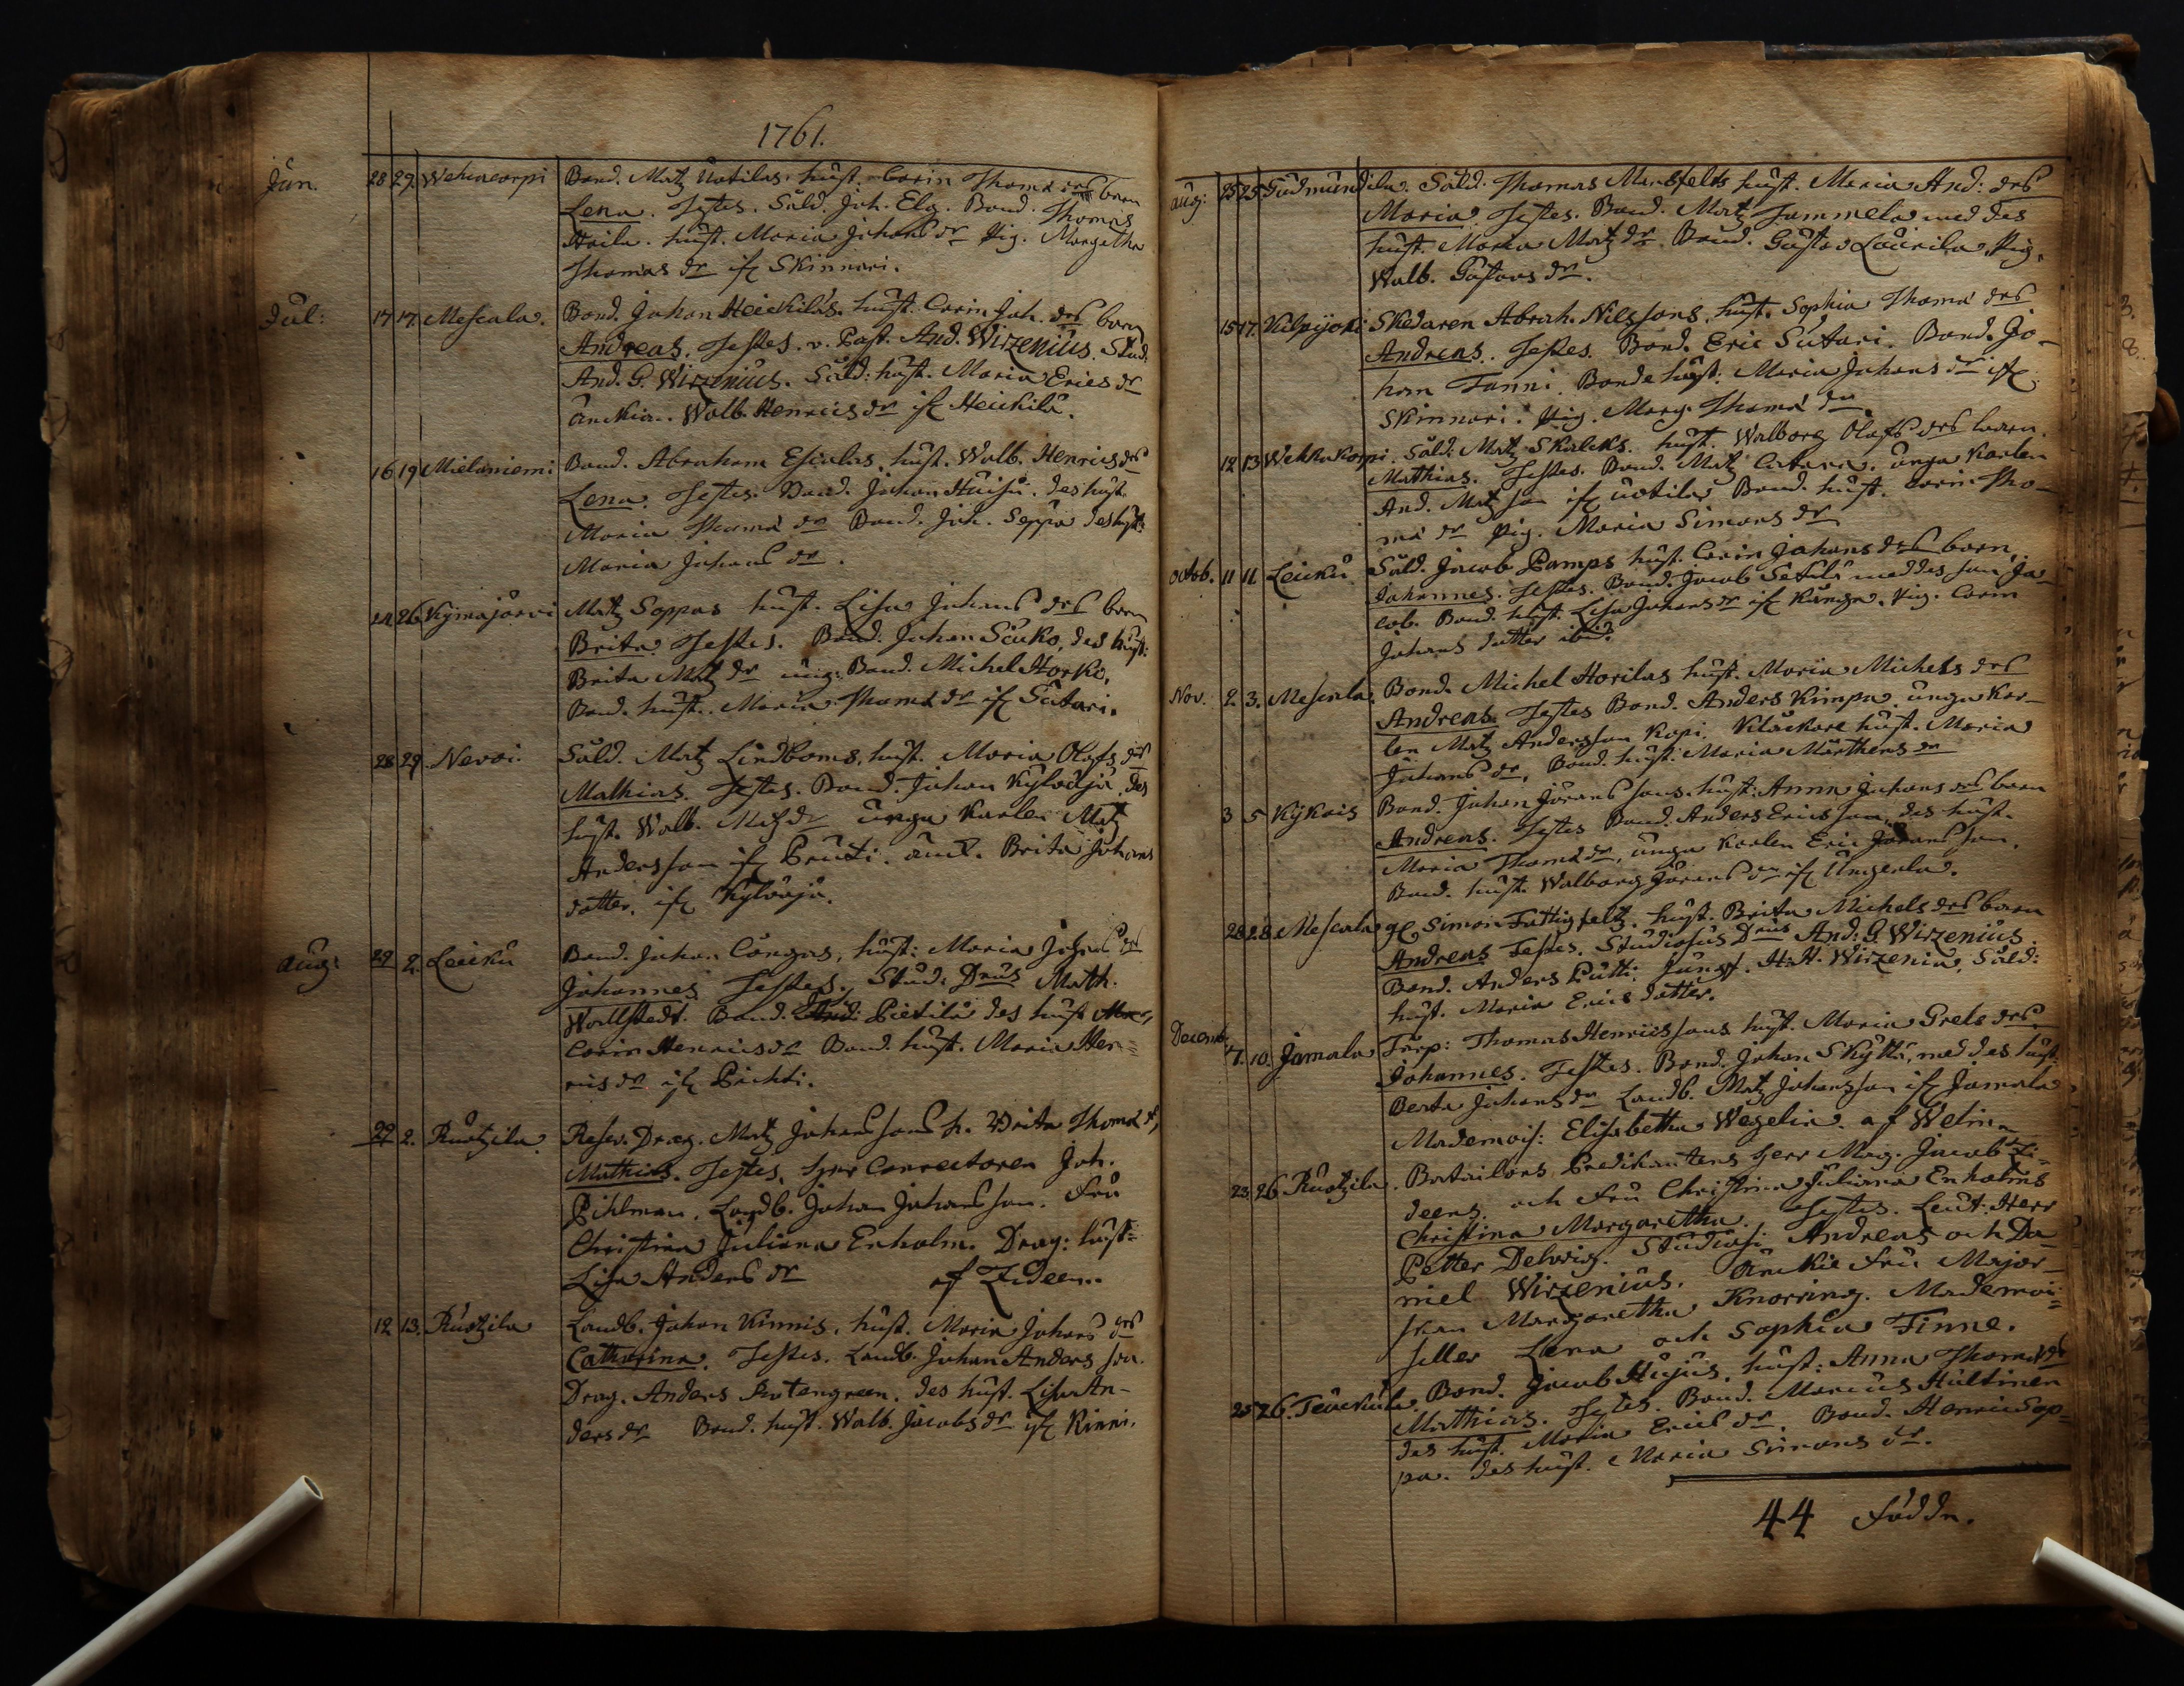 1761.
Jun. 28 29. Wehmacorpi Bond. Matz Uotilas hust. Carin Thomæ drs barn
Lena. Testes. Såld. Joh. Elg. Bond. Thomas
Heila. hust. Maria Johans dr Pig. Margetha
Thomas dr ifr Skinnari.
Jul: 17 17. Mescala. Bond. Johan Heickiläs. hust. Carin Joh. drs barn
Andreas. Testes. v. Past. And. Wirzenius. Stud.
And. G. Wirzenius. Såld: hust. Maria Erics dr
änckia. Walb. Henrics dr ifr Heickilä.
16 19 Mielaniemi Bond. Abraham Escalas, hust. Walb. Henrics drs
Lena. Testes. Bond. Johan des hust.
Maria Thomæ dr Bond. Joh. Seppä des hust:
Maria Johans dr.
24 26 Kymajärvi Matz Soppas hust. Lisa Johans drs barn
Brita. Testes. Bond. Johan Sauko, des hust:
Brita Matz dr ung: Bond. Michel Horko,
Bond. hust. Maria Thomæ dr ifr Sutari.
28 29. Nevoi. Såld. Matz Lindboms, hust. Maria Olofs drs
Mathias. Testes. Bond. Johan Kyläoja, des
hust. Walb. Matz dr unga Karlen Matz
Andersson ifr Pruuti. änck. Brita Johans
dotter. ifr Kyläoja.
Aug: 29 2. Leicku Bond. Johan Cangas, hust: Maria Johans drs
Johannes Testes. Stud: Dnus Math.
Wallstedt. Bond. Pietilä des hust
Carin Henrics dr Bond. hust. Maria Hen=
rics dr ifr Pichti.
29 2. Ruotzila. Reserv. Drag. Matz Johanssons h. Brita Thomæ dr,
Mathias. Testes. herr Conrectoren Joh.
Pihlman. Landb. Johan Johansson. Fru
Christina Juliana Enholm. Drag: hust=
Lisa Anders dr af Zideen.
12 13. Ruotzila Landb. Johan Kinnis, hust. Maria Johans drs
Catharina. Testes. Landb. Johan Anders son.
Drag. Anders Rutengreen. des hust. Lisa An-
ders dr Bond. hust. Walb. Jacobs dr ifr Kinni.
Aug: 25 25 Gudmundila. Såld. Thomas Mansfelts hust. Maria And: drs
Maria Testes. Bond. Matz Jammela med des
hust. Maria Matz dr. Bond. Gustav Laurila. Pig.
Walb. Gustavs dr.
15 17. Kilpijoki Skedaren Abrah. Nilssons. hust. Sophia Thomæ drs
Andreas. Testes. Bond. Eric Sutari. Bond. Jo-
han Tanni. Bonde hust: Maria Johans dr ifr
Skinnari. Pig. Marg. Thomæ dr.
12 13 Wehkakorpi. Såld: Matz Skalcks. hust. Walborg Olofs drs barn
Mathias. Testes. Bond. Matz unga Karlen
And. Matzson ifr Uotila, Bond. hust. Carin Tho-
mæ dr Pig. Maria Simons dr
Octob. 11 11. Leicku Såld. Jacob Pamps hust. Carin Johans drs barn
Johannes. Testes. Bond. Jacob Setälä med des son Ja-
cob. Bond. hust. Lisa Johans dr ifr Kanga. Pig. Carin
Johans dotter ibid.
Nov. 2. 3. Mescala. Bond. Michel Horilas hust. Maria Michels drs
Andreas. Testes Bond. Anders Kimpa. unga Kar-
len Matz Andersson Kopi. Klåckare hust. Maria
Johans dr. Bond. hust. Maria Mårthens dr
3 5 Kykois Bond. Johan Jöranssons. hust. Anna Johans drs barn
Andreas. Testes Bond. Anders Ericsson, des hust.
Maria Thomæ dr, unga Karlen Eric Jöransson.
Bond. hust. Walborg Jörans dr ifr Ungerla.
28 28 Mescala gl Simon Fattigfeltz. hust. Brita Michels drs barn
Andreas Testes. Studiosus Dnus And: G. Wirzenius.
Bond. Anders Putti. Jungf. H. H. Wirzenia, Såld:
hust. Maria Erics dotter.
Decemb. 7. 10. Jamala Torp: Thomas Henricssons hust. Maria Grels drs
Johannes. Testes. Bond. Johan Skyttä, med des hust
Beata Johans dr Landb. Matz Johansson ifr Jamala
Mademois: Elisabetha Wegelia. af Welin
23 26 Ruotzila. Batailons Predikantens herr Mag. Jacob Zi=
deens. och Fru Christina Juliana Enholms
Christina Margaretha. Testes. Leut: Herr
Petter Delwig. Studiosi Andreas och Da-
niel Wirzenius. Änckie Fru Major-
skan Margaretha Knorring. Mademoi=
seller Lena och Sophia Finne.
25 26. Teuckula. Bond. Jacob Hujus. hust: Anna Thomæ dr
Mathias. Testes. Bond. Marcus Hultinen
des hust. Maria Erics dr. Bond. Henric Sep=
pä. des hust. Maria Simons dr.
44 Födde.